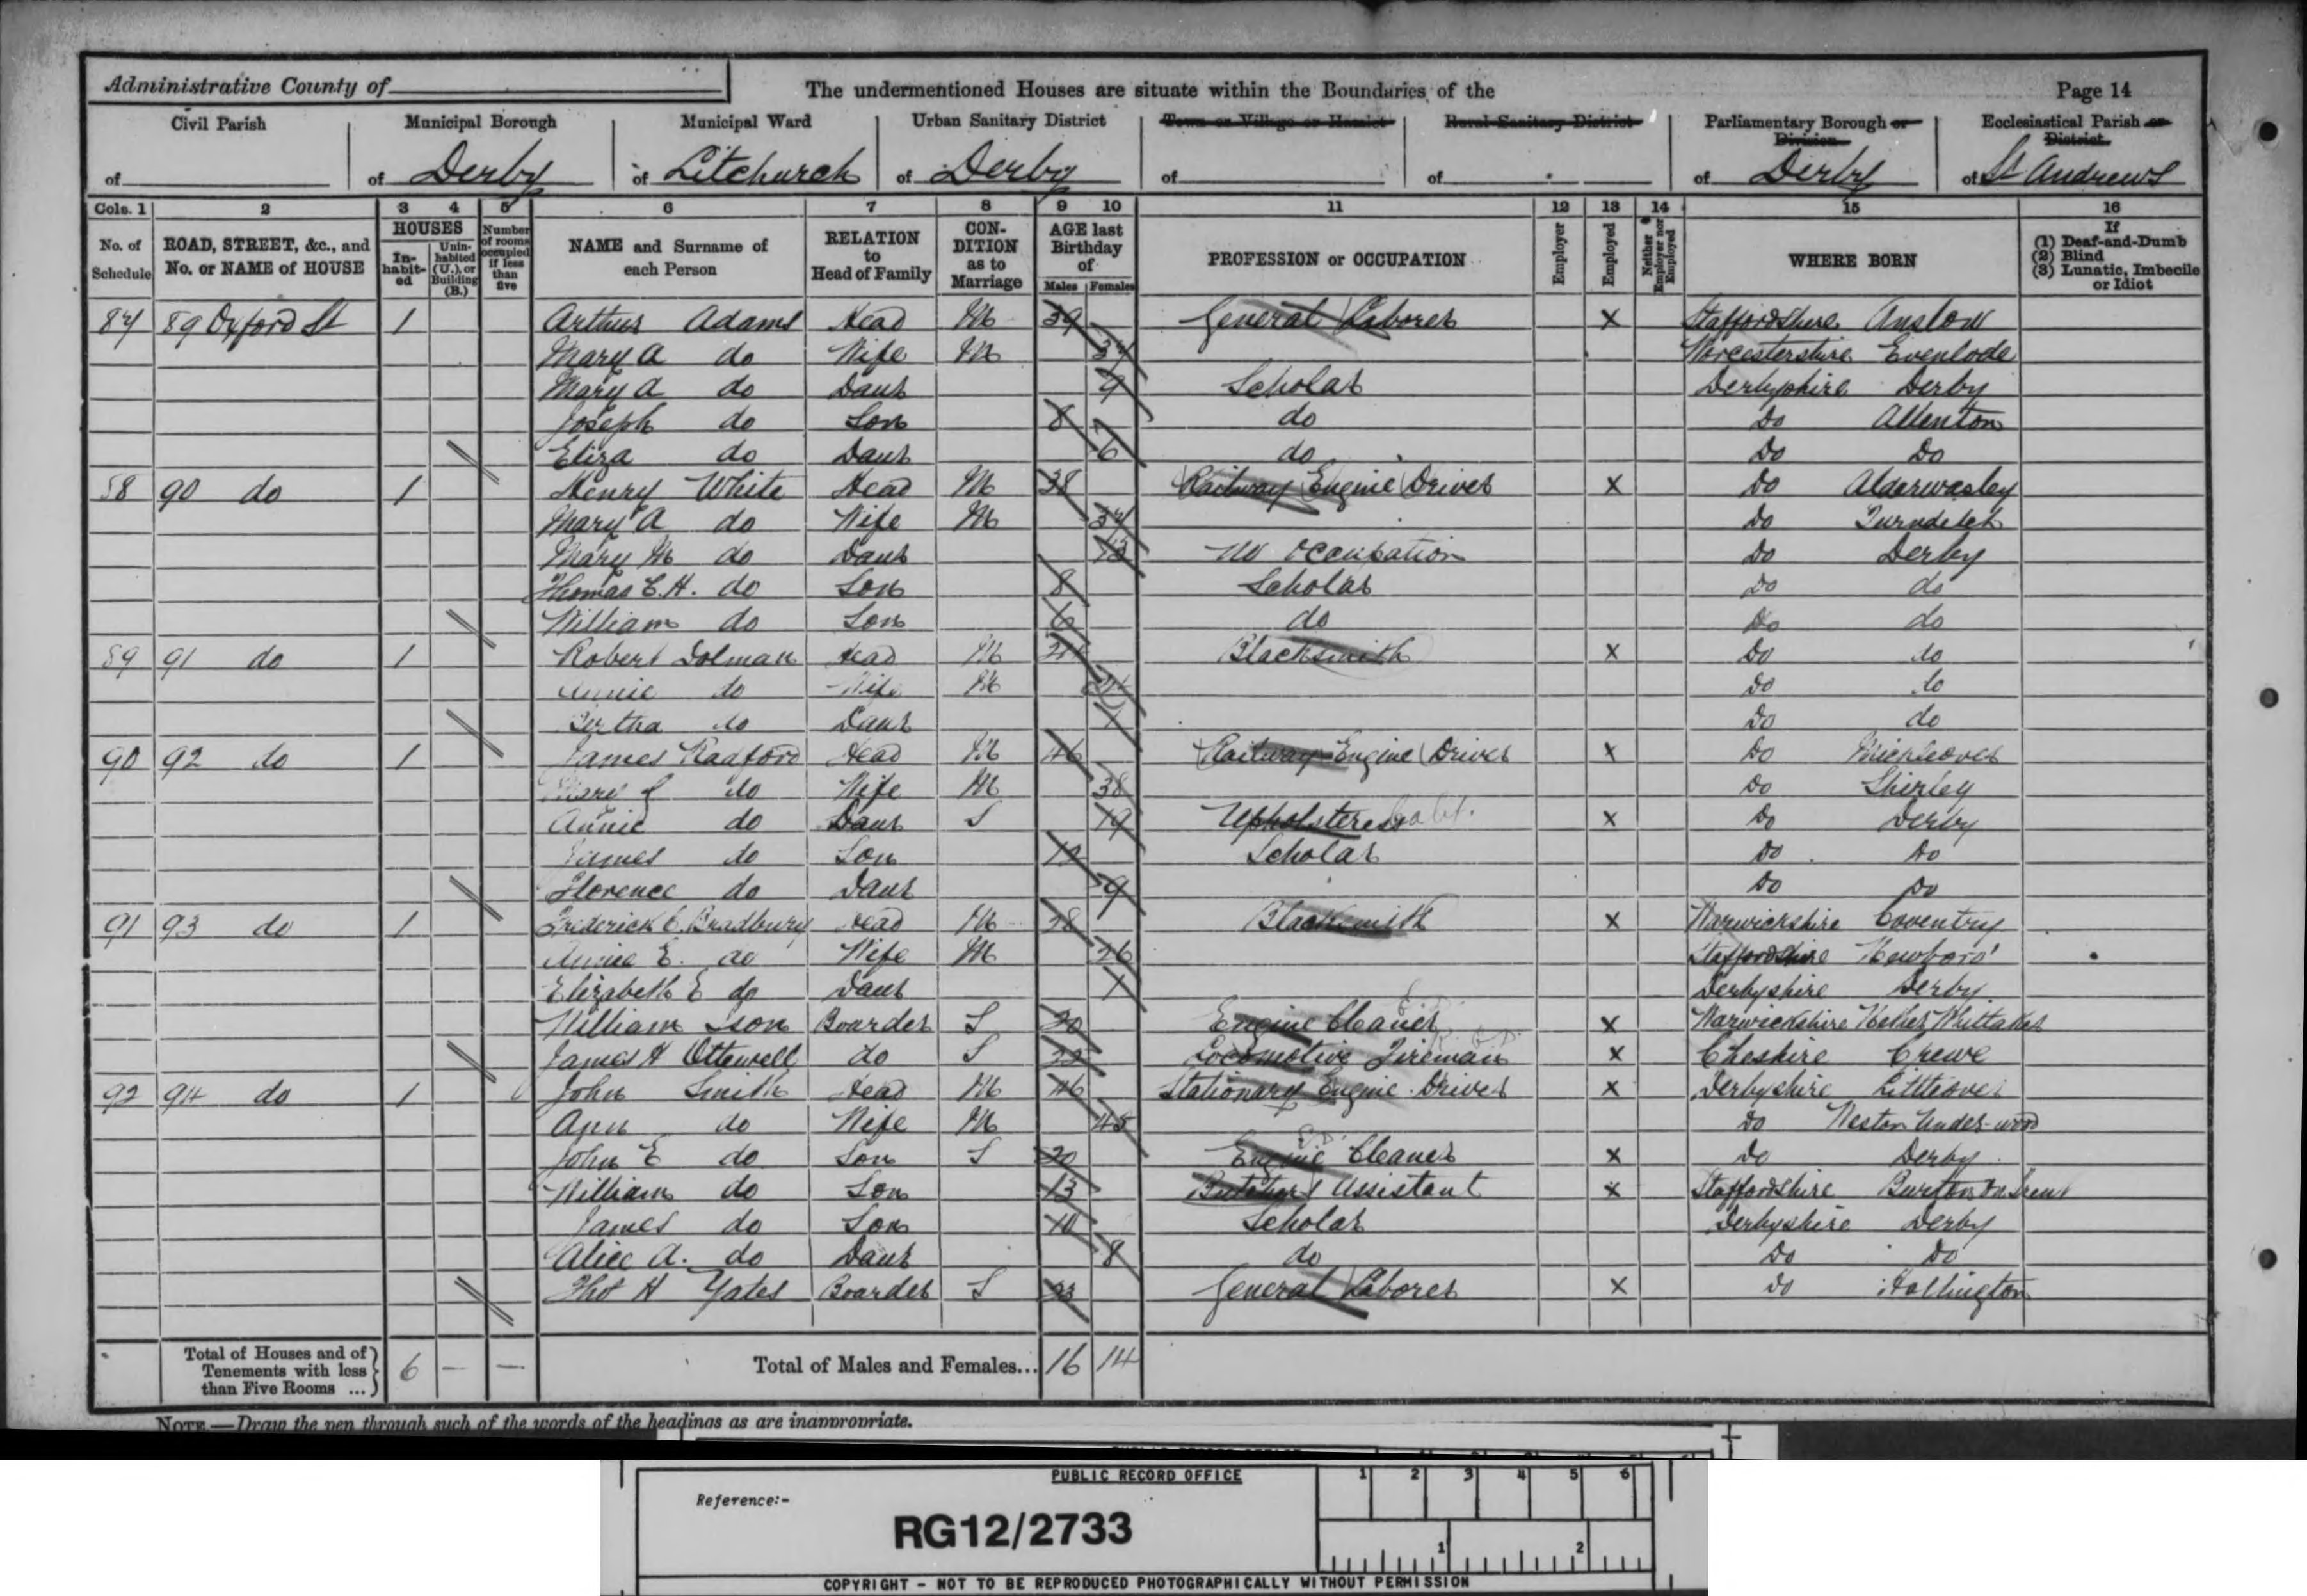 Administrative County of
The undermentioned Houses are situate within the Boundaries of the
Page 14
Civil Parish
Municipal Borough
Municipal Ward
Urban Sanitary District
Town or Village or Hamlet
Rural Sanitary District
Parliamentary Borough or Division
Ecclesiastical Parish or District
of
of Derby
of Litchurch
of Derby
of
of
of Derby
of St Andrews
Cols. 1 2 3 4 5 6 7 8 9 10 11 12 13 14 15 16
No. of Schedule
ROAD, STREET, &c., and No. or NAME of HOUSE
HOUSES
In-habit-ed
Unin-habited (U.), or Building (B.)
Number of rooms occupied if less than five
NAME and Surname of each Person
RELATION to Head of Family
CON-DITION as to Marriage
AGE last Birthday of
Males Females
PROFESSION or OCCUPATION
Employer
Employed
Neither Employer nor Employed
WHERE BORN
If
(1) Deaf-and-Dumb
(2) Blind
(3) Lunatic, Imbecile or Idiot
87 89 Oxford St 1 Arthur Adams Head M 39 General Laborer X Staffordshire Anslow
Mary A do Wife M 37 Worcestershire Evenlode
Mary A do Daur 9 Scholar Derbyshire Derby
Joseph do Son 8 do Do Allenton
Eliza do Daur 6 do Do Do
88 90 do 1 Henry White Head M 38 Railway Engine Driver X Do Alderwasley
Mary A do Wife M 37 Do Turnditch
Mary M do Daur 13 No occupation Do Derby
Thomas E. H. do Son 8 Scholar Do do
William do Son 6 do Do do
89 91 do 1 Robert Dolman Head M Blacksmith X Do do
Annie do Wife M Do do
Bertha do Daur 1 Do do
90 92 do 1 James Radford Head M 46 Railway Engine Driver X Do Mickleover
do Wife M 38 Do Shirley
Annie do Daur S 19 Upholsteress X Do Derby
James do Son 12 Scholar Do Do
Florence do Daur 9 Do Do
91 93 do 1 Frederick C. Bradbury Head M 28 Blacksmith X Warwickshire Coventry
Annie E. do Wife M 26 Staffordshire Newboro'
Elizabeth E do Daur 1 Derbyshire Derby
William Ison Boarder S 20 Engine Cleaner X Warwickshire Nether Whittaker
James H Ottewell do S 22 Locomotive Fireman X Cheshire Crewe
92 94 do 1 John Smith Head M 46 Stationary Engine Driver X Derbyshire Littleover
Ann do Wife M 45 Do Weston Under-wood
John E do Son S 20 Engine Cleaner X Do Derby
William do Son 13 Butchers Assistant X Staffordshire Burton on Trent
James do Son 10 Scholar Derbyshire Derby
Alice A. do Daur 8 do Do Do
Thos H Yates Boarder S 23 General Laborer X Do Hollington
Total of Houses and of Tenements with less than Five Rooms ... 6 — —
Total of Males and Females... 16 14
NOTE.—Draw the pen through such of the words of the headings as are inappropriate.
PUBLIC RECORD OFFICE
1 2 3 4 5 6
Reference:-
RG12/2733
1 2
COPYRIGHT - NOT TO BE REPRODUCED PHOTOGRAPHICALLY WITHOUT PERMISSION